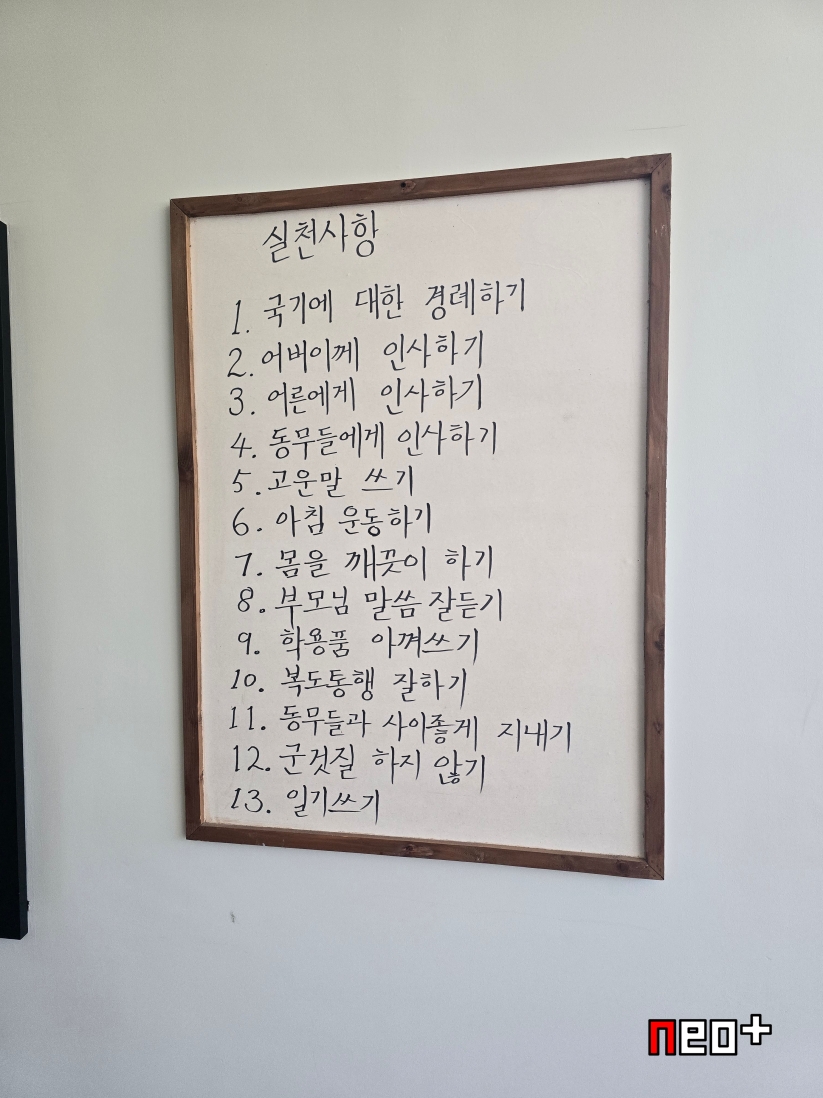 실천사항
1. 국기에 대한 경례하기
2. 어버이께 인사하기
3. 어른에게 인사하기
4. 동무들에게 인사하기
5. 고운말 쓰기
6. 아침 운동하기
7. 몸을 깨끗이 하기
8. 부모님 말씀 잘듣기
9. 학용품 아껴쓰기
10. 복도통행 잘하기
11. 동무들과 사이좋게 지내기
12. 군것질 하지 않기
13. 일기쓰기
neo+